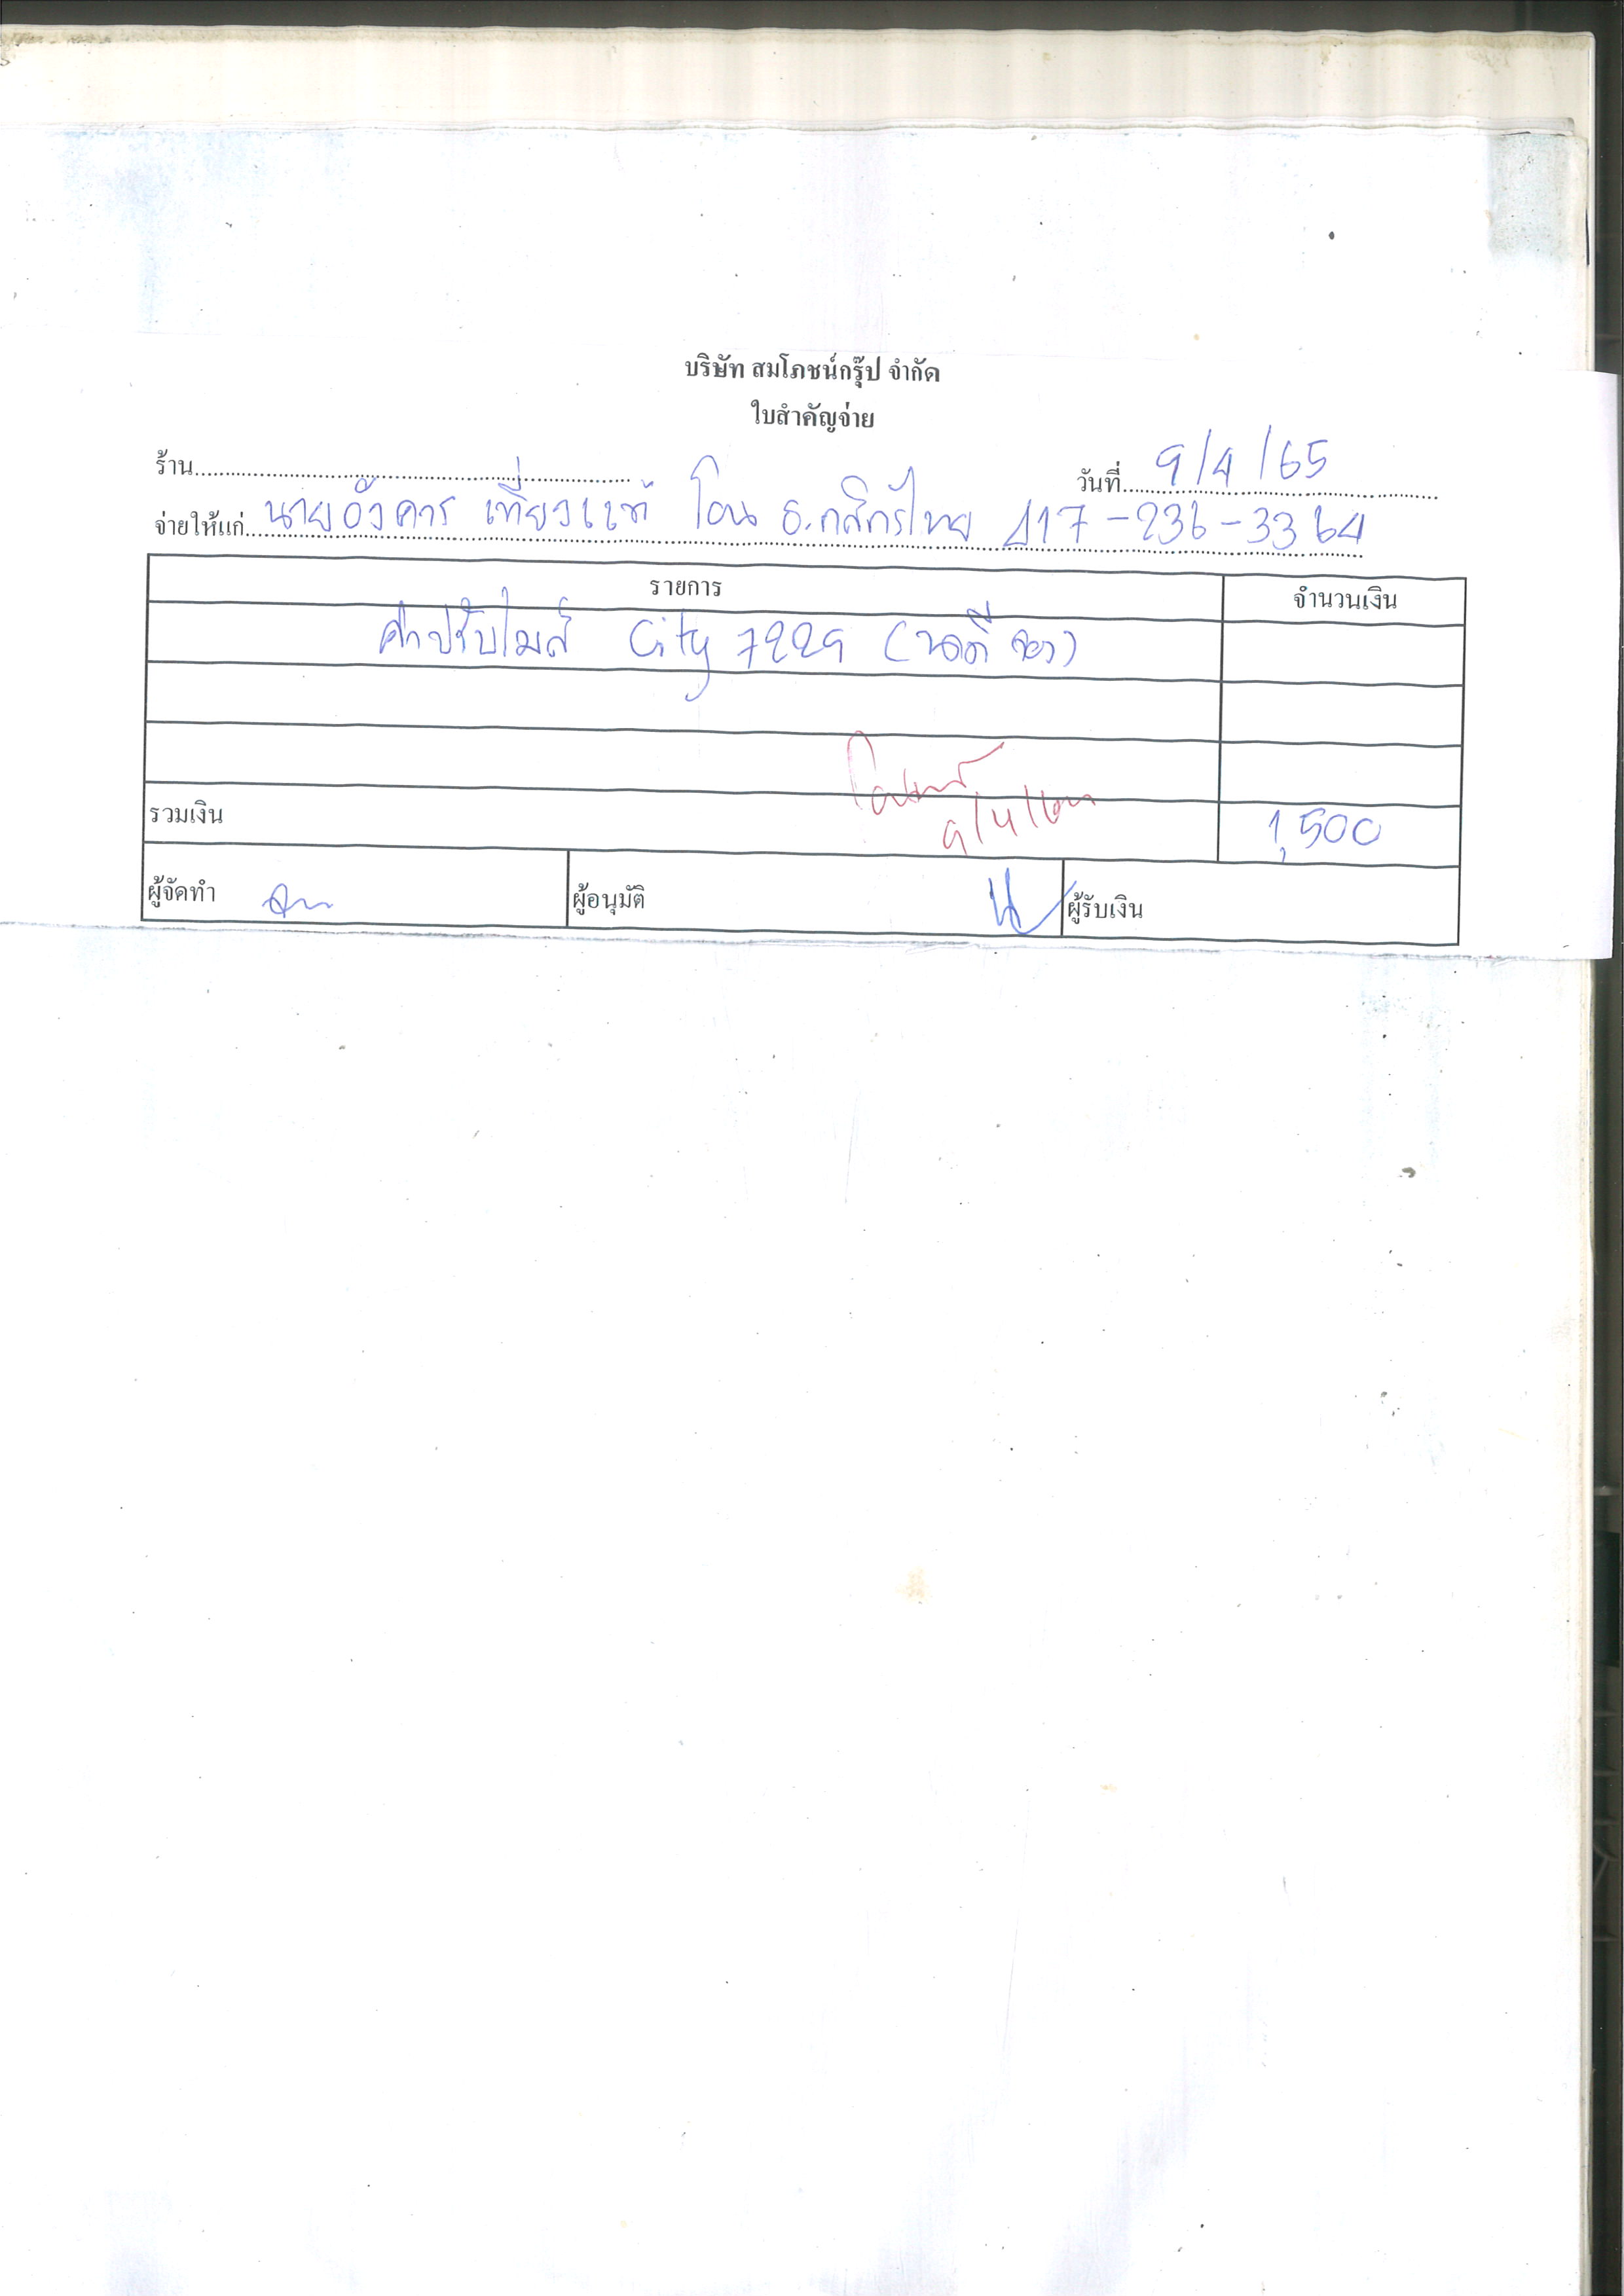 บริษัท สมโภชน์กรุ๊ป จำกัด
ใบสำคัญจ่าย
ร้าน
วันที่ 9/4/65
จ่ายให้แก่ นายอังคาร เที่ยงแท้ โอน ธ.กสิกรไทย 117-236-3364
รายการ จำนวนเงิน
ค่าปรับไมล์ City 7229
รวมเงิน 1,500
ผู้จัดทำ ผู้อนุมัติ ผู้รับเงิน